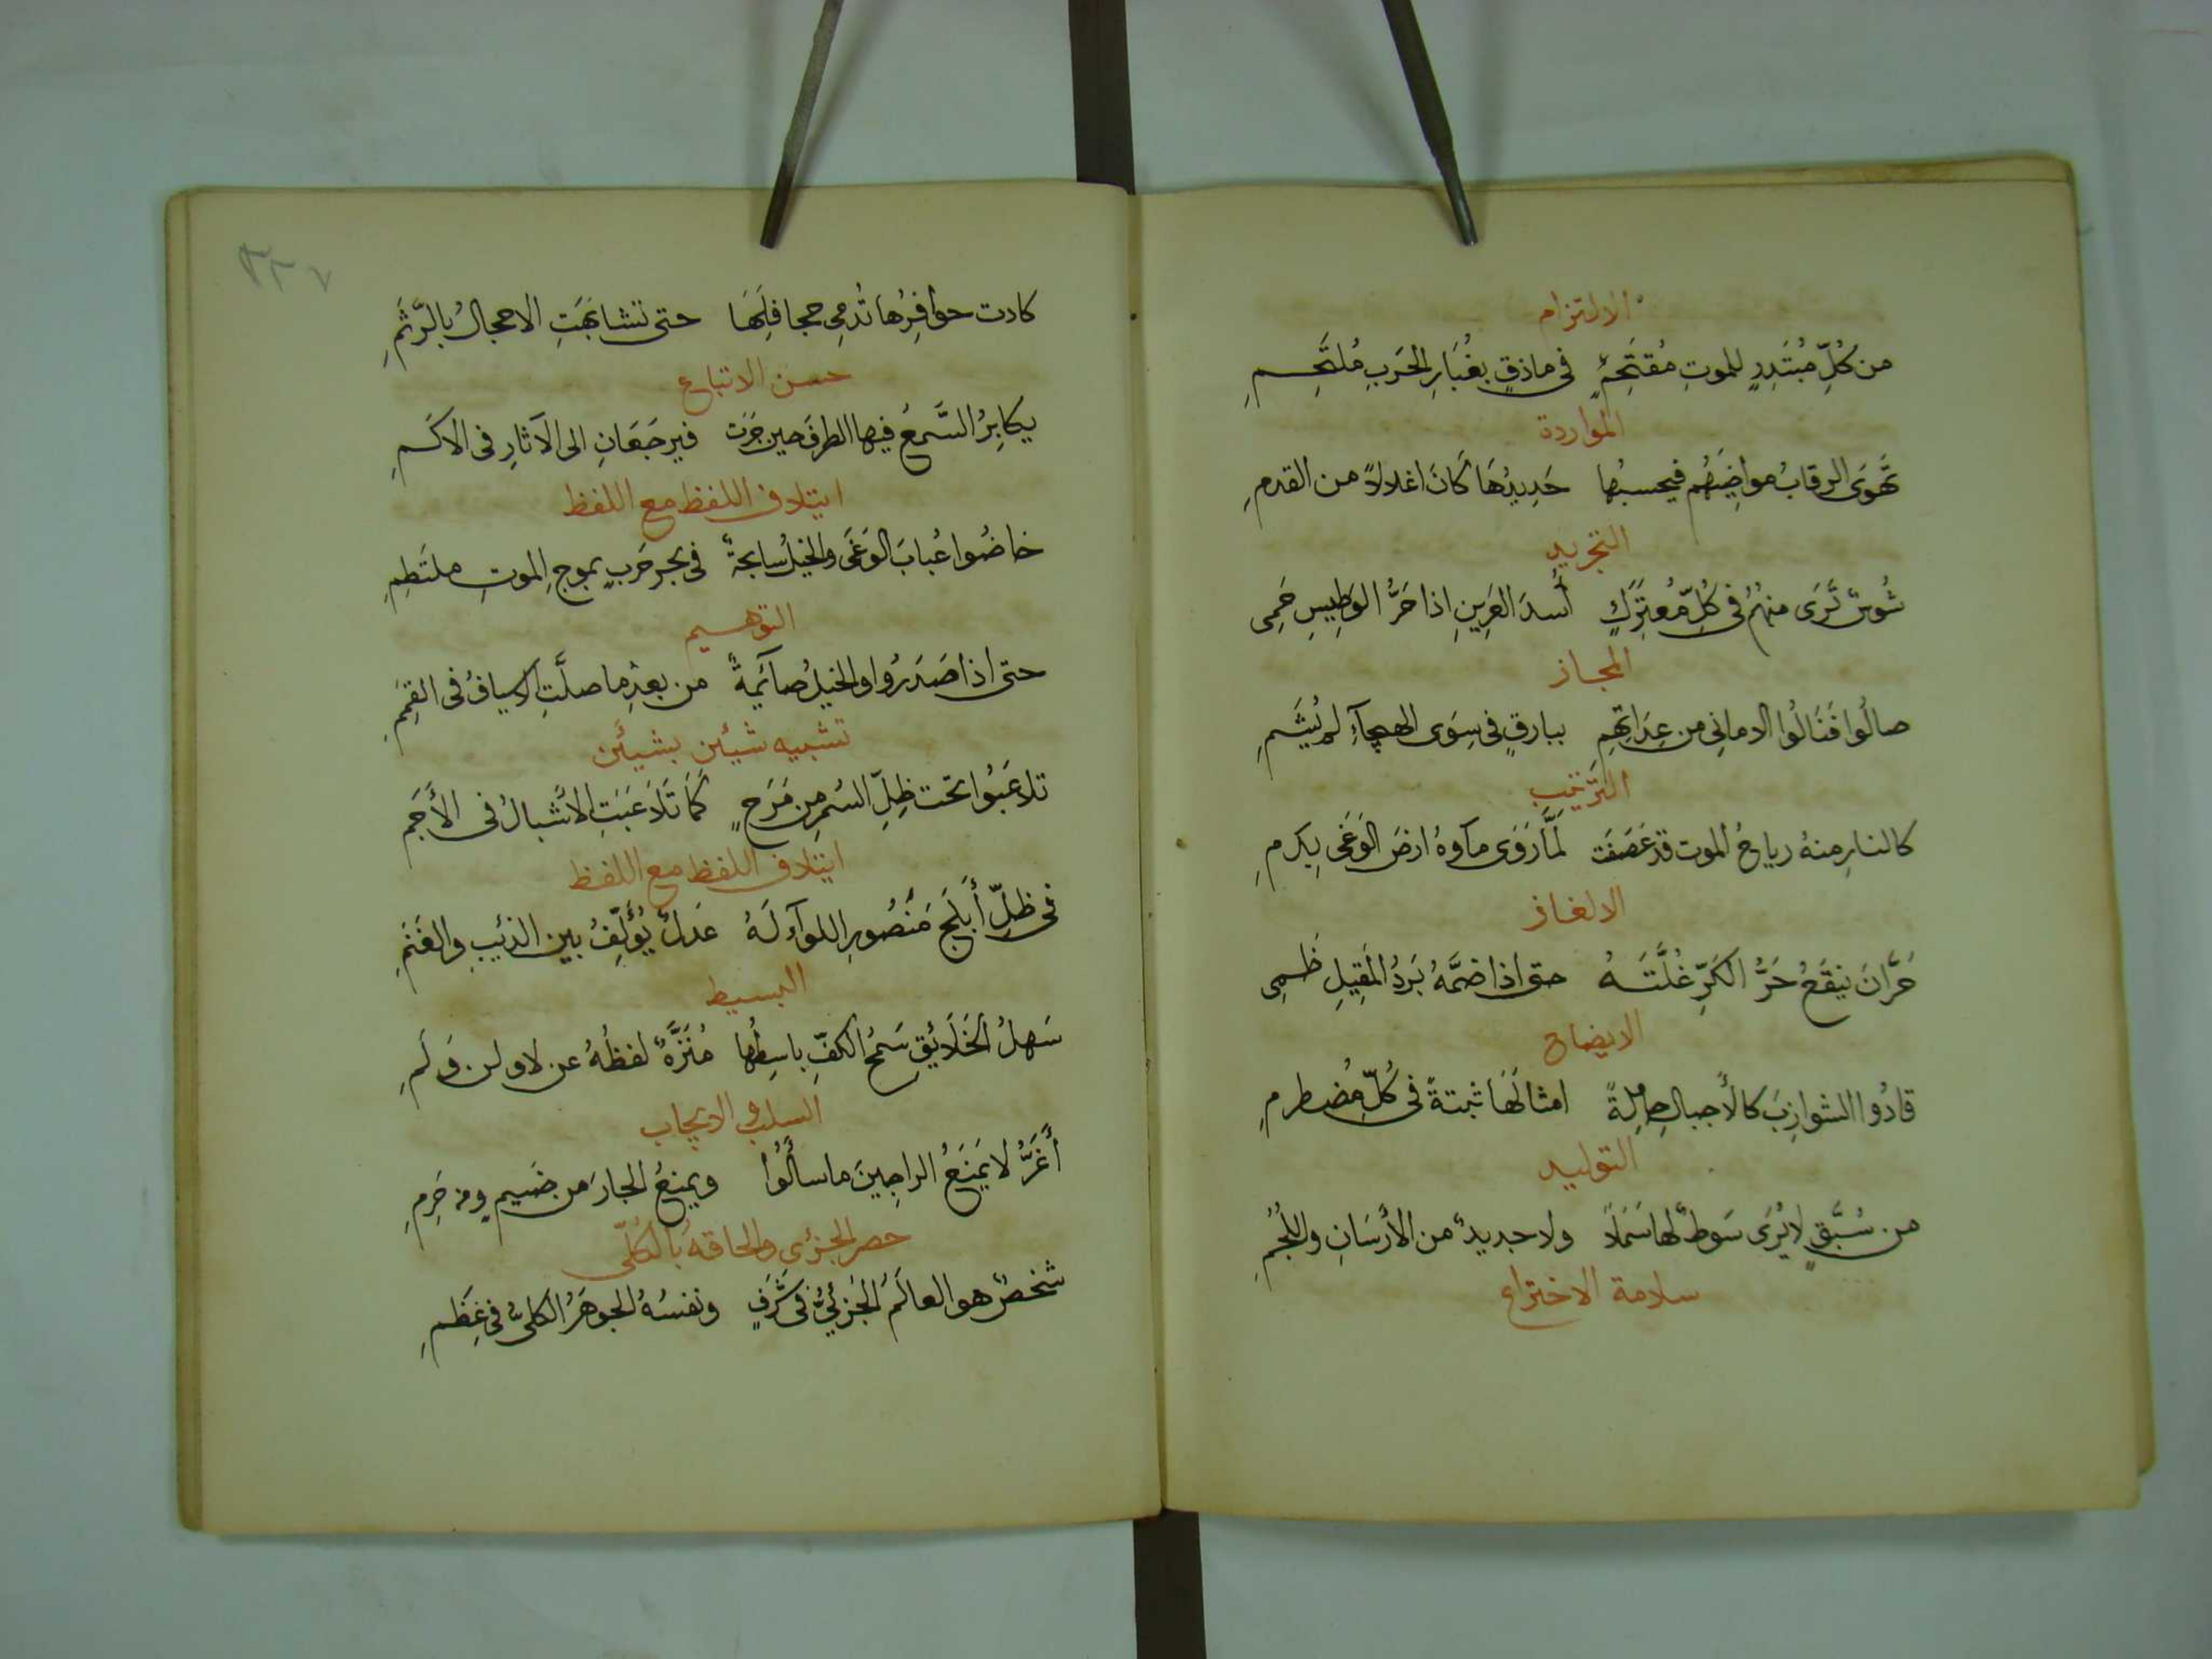 الالتزام
من كُلِّ مُبتَدِرٍ للموتِ مُقتَحِمٍ في ماذقٍ بغُبَارِ الحَربِ مُلتَحِمِ
المواردة
تَهوَى الرقابُ مواضِيَهُم فيحسبُها حَدِيدُهَا كَانَ اغلالاً من القدمِ
التجريد
شُوسٌ تَرَى منهُمُ في كُلِّ مُعتَرَكٍ أُسدَ العَرِينِ اذا حَرُّ الوَطِيسِ حَمِى
المجاز
صالُوا فَنَالُوا الامانِي من عِدَاتِهِمِ ببارقٍ في سِوَى الهيجآءِ لم يُشَمِ
الترتيب
كالنارِ منهُ رياحُ الموت قد عَصَفَت لَمَّا رَوَى مآؤهُ ارضَ الوَغَى بِدَمِ
الالغاز
حَرَّانَ ينقَعُ حَرُّ الكَرِّ غُلَّتَهُ حتى اذا ضمَّهُ بَردُ المَقِيلِ ظَمِى
الايضاح
قادُوا الشوازِبَ كالأجبالِ حامِلةً امثالَهَا ثبتةً في كُلِّ مُضطرمِ
التوليد
من سُبَّقٍ لا يُرَى سَوطٌ لها سَمَلاً ولا جديدٌ من الأرسَانِ واللُجُمِ
سلامة الاختراع
٢٢٧
كادت حوافِرُها تُدمِي جحافِلَهَا حتى تشابَهَتِ الاحجالُ بالرَّثَمِ
حسن الاتباع
يكابِرُ السَّمعُ فيها الطرفَ حين جَرَت فيرجَعَانِ الى الآثارِ في الاكَمِ
ايتلاف اللفظ مع اللفظ
خاضُوا عُبابَ الوَغَى والخيلُ سابحةٌ في بحر حَربٍ بموجِ الموتِ ملتَطِمِ
التوهيم
حتى اذا صَدَرُوا والخيلُ صآئمةٌ من بعدِ ما صلَّتِ الاسيافُ في القِمَمِ
تشبيه شيئين بشيئين
تلاعَبُوا تحت ظِلِّ السُمرِ من مَرَحٍ كَمَا تَلاَعَبَتِ الأشبالُ في الأَجَمِ
ايتلاف اللفظ مع اللفظ
في ظلِّ أَبلَجَ مَنصُورِ اللوآءِ لَهُ عَدلٌ يُؤَلِّفُ بين الذئيبِ والغَنَمِ
البسيط
سَهلُ الخَلاَئِقِ سَمحُ الكفِّ باسِطُها مُنَزَّهٌ لفظُهُ عن لا ولن وَلَمِ
السلب والايجاب
أَغَرُّ لا يَمنَعُ الراجِينَ ما سأَلُوا ويمنعُ الجارَ من ضَيمٍ ومن حَرِمِ
حصر الجزئى والحاقهُ بالكُلّى
شخصٌ هو العالَمُ الجُزئيُّ في شَرَفٍ ونفسُهُ الجوهَرُ الكليُّ في عِظَمِ